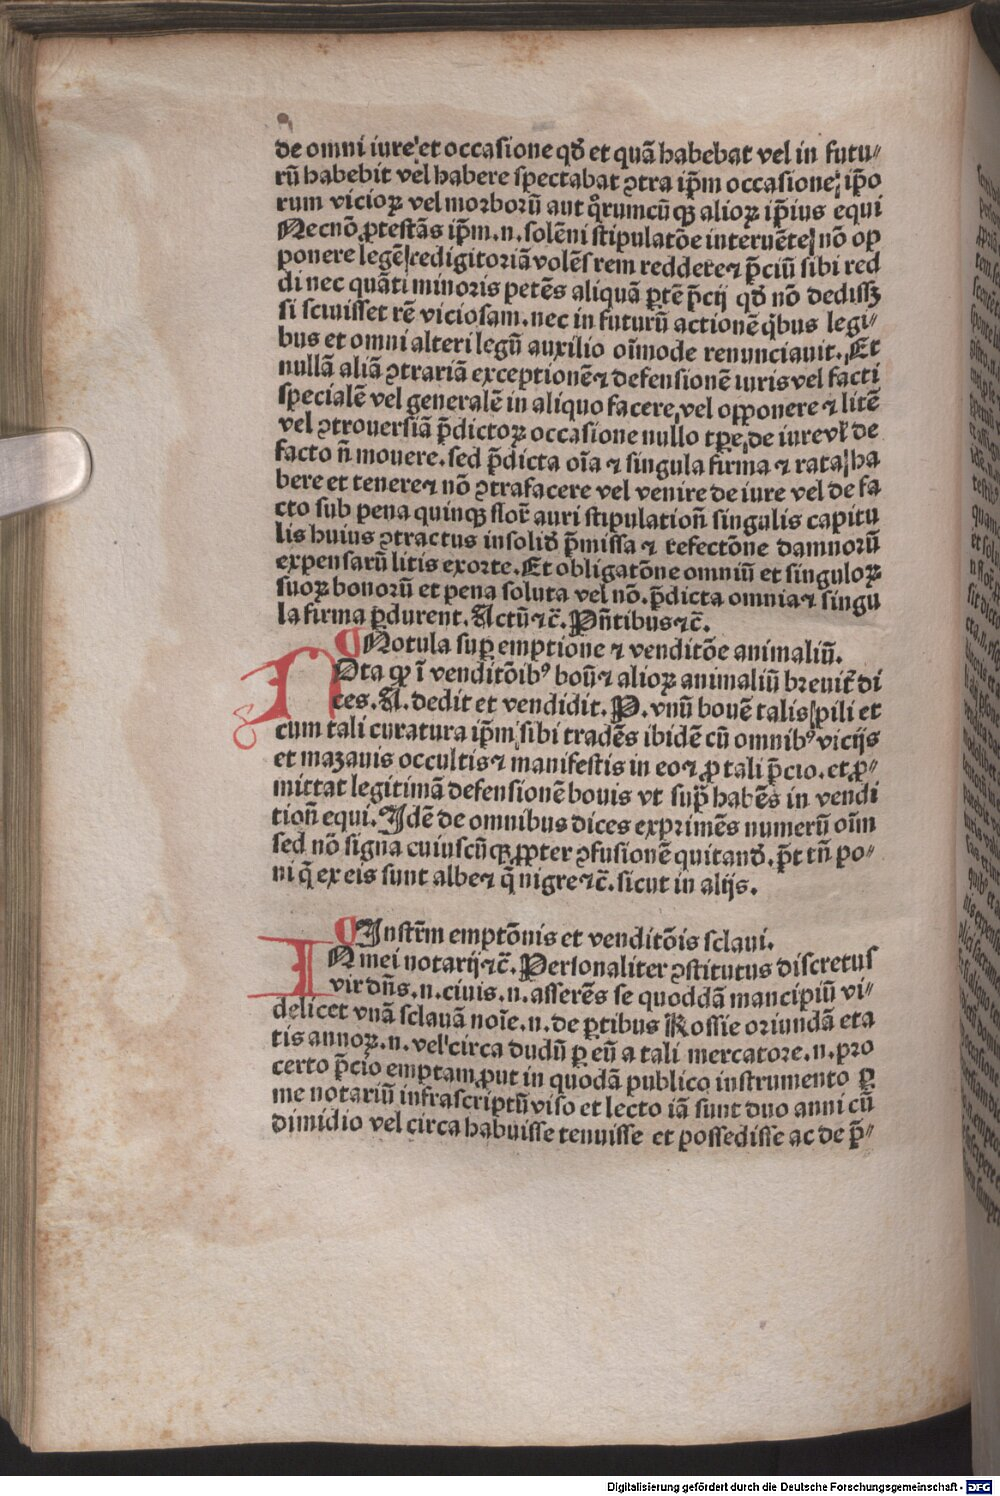 de omni iure et occasione qđ et quã habebat vel in futu⸗
rũ habebit vel habere spectabat ꝯtra ip̃m occasione ip̃o
rum vicioꝝ vel morborũ aut qͦrumcũqꝫ alioꝝ ip̃ius equi
Necnõ ꝓtestãs ip̃m.n.solẽni stipulatõe interuẽte nõ op
ponere legẽ redigitoriã volẽs rem reddere ⁊ p̃ciũ sibi red
di nec quãti minoris petẽs aliquã ꝑtẽ p̃cij qđ nõ dedissꝫ
si sciuisset rẽ viciosam.nec in futurũ actionẽ q̇bus legi⸗
bus et omni alteri legũ auxilio oĩmode renunciauit. Et
nullã aliã ꝯtrariã exceptionẽ ⁊ defensionẽ iuris vel facti
specialẽ vel generalẽ in aliquo facere vel opponere ⁊ litẽ
vel ꝯtrouersiã p̃dictoꝝ occasione nullo tꝑe de iure vł de
facto ñ mouere. sed p̃dicta oĩa ⁊ singula firma ⁊ rata ha
bere et tenere ⁊ nõ ꝯtrafacere vel venire de iure vel de fa
cto sub pena quinqꝫ flor̃ auri stipulatioñ singulis capitu
lis huius ꝯtractus insoliđ p̃missa ⁊ refectõne damnorũ
expensarũ litis exorte. Et obligatõne omniũ et singuloꝝ
suoꝝ bonorũ et pena soluta vel nõ. p̃dicta omnia ⁊ singu
la firma ꝑdurent. Actũ ⁊c̃. Pñtibus ⁊c̃.
¶ Notula suꝑ emptione ⁊ venditõe animaliũ.
NOta qꝙ ĩ venditõibꝰ boũ ⁊ alioꝝ animaliũ breuit̃ di
ces. A. dedit et vendidit. P. vnũ bouẽ talis pili et
cum tali curatura ip̃m sibi tradẽs ibidẽ cũ omnibꝰ vicijs
et mazauis occultis ⁊ manifestis in eo ⁊ ꝓ tali p̃cio. et ꝓ⸗
mittat legitimã defensionẽ bouis vt sup̃ habẽs in vendi
tioñ equi. Idẽ de omnibus dices exprimẽs numerũ oĩm
sed nõ signa cuiuscũqꝫ ꝓpter ꝯfusionẽ quitanđ. p̃t tñ po⸗
ni q̃ ex eis sunt albe ⁊ q̃ nigre ⁊c̃. sicut in alijs.
¶ Instr̃m emptõnis et venditõis sclaui.
IN mei notarij ⁊c̃. Personaliter ꝯstitutus discretus
vir dñs.n.ciuis.n.asserẽs se quoddã mancipiũ vi⸗
delicet vnã sclauã noĩe.n.de ꝑtibus Rossie oriundã eta
tis annoꝝ.n.vel circa dudũ ꝑ eũ a tali mercatore.n.pro
certo p̃cio emptam ꝓut in quodã publico instrumento ꝑ
me notariũ infrascriptũ viso et lecto iã sunt duo anni cũ
dimidio vel circa habuisse tenuisse et possedisse ac de p̃⸗
Digitalisierung gefördert durch die Deutsche Forschungsgemeinschaft - DFG